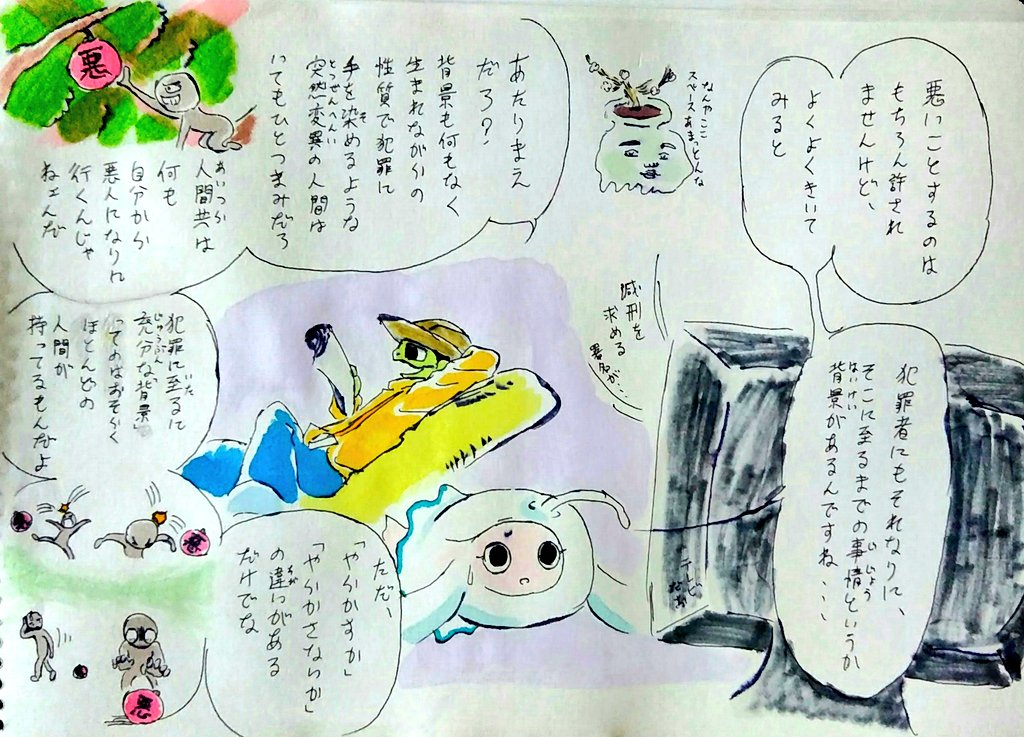 悪いことするのは
もちろん許され
ませんけど、
よくよくきいて
みると
犯罪者にもそれなりに、
そこに至るまでの事情というか
じじょう
背景があるんですね、、
はいけい
なんやここ
スペースあまっとんな
減刑を
求める
署名が…
テレビ
あたりまえ
だろ?
背景も何もなく
生まれながらの
性質で犯罪に
手を染めるような
そ
突然変異の人間は
とつぜんへんい
いてもひとつまみだろ
人間共は
あいつら
何も
自分から
悪人になりに
行くんじゃ
ねェんだ
悪
犯罪に至るに
いた
充分な背景」
じゅうぶん
ってのはおそらく
ほとんどの
人間が
持ってるもんだよ
悪
ただ、
「やらかすか」
「やらかさないか」
の違いがある
ちが
だけでな
悪